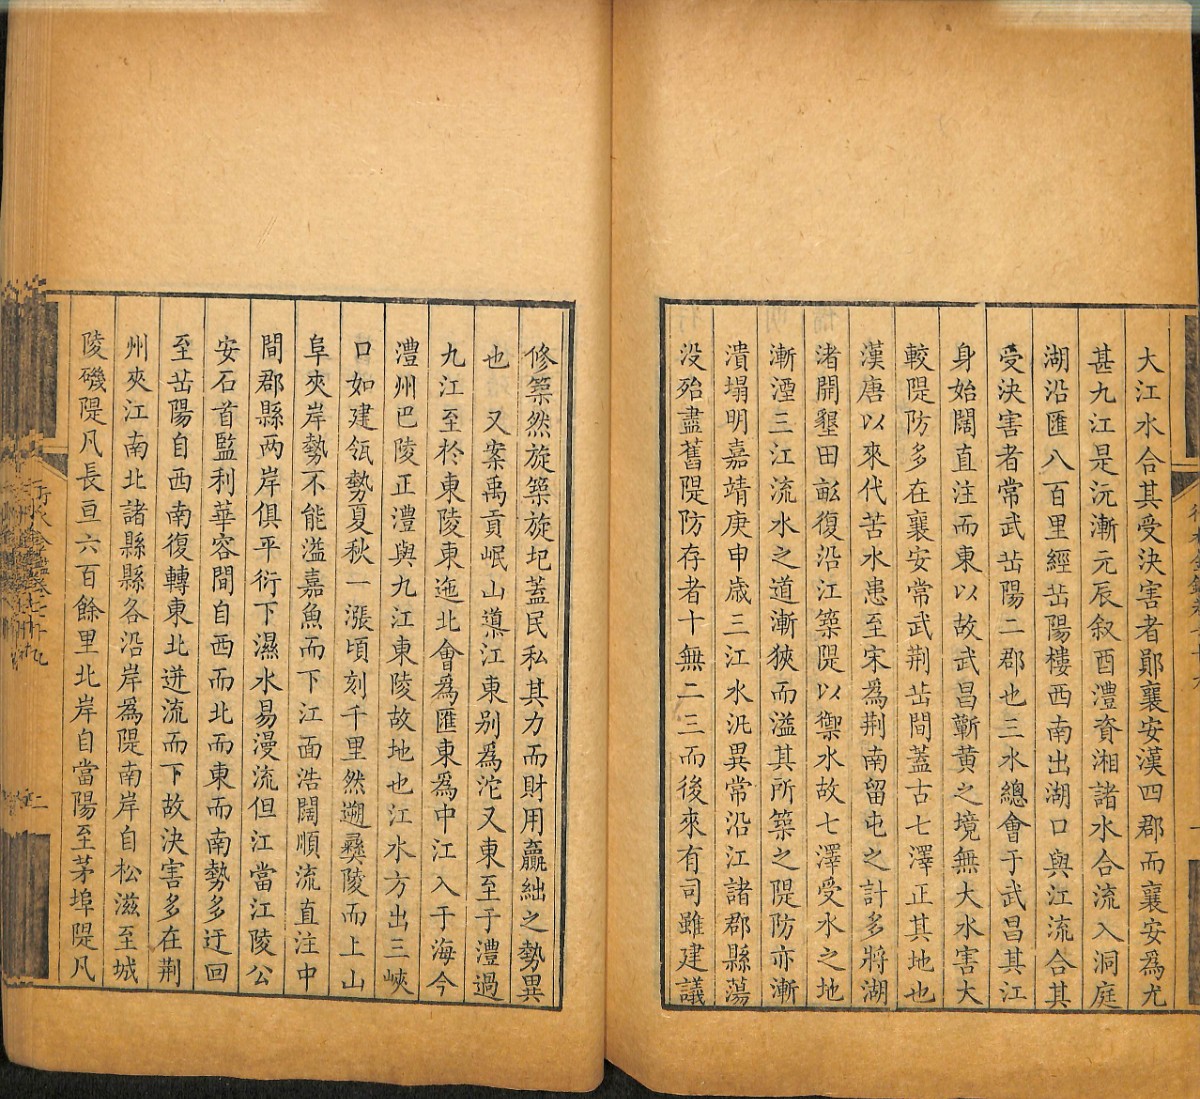 大江水合其受決害者鄖襄安漢四郡而襄安為尤
甚九江是沅漸元辰叙酉澧資湘諸水合流入洞庭
湖沿匯八百里經岳陽樓西南出湖口與江流合其
受決害者常武岳陽二郡也三水總會于武昌其江
身始闊直注而東以故武昌蘄黃之境無大水害大
較隄防多在襄安常武荆岳間蓋古七澤正其地也
漢唐以來代苦水患至宋為荆南留屯之計多將湖
渚開墾田畝復沿江築隄以禦水故七澤受水之地
漸湮三江流水之道漸狹而溢其所築之隄防亦漸
潰塌明嘉靖庚申歳三江水汎異常沿江諸郡縣蕩
没殆盡舊隄防存者十無二三而後來有司雖建議
修築然旋築旋圮蓋民私其力而財用贏絀之勢異
也 又案禹貢岷山導江東别為沱又東至于澧過
九江至於東陵東迤北會為匯東為中江入于海今
澧州巴陵正澧與九江東陵故地也江水方出三峽
口如建瓴勢夏秋一漲頃刻千里然遡彝陵而上山
阜夾岸勢不能溢嘉魚而下江面浩闊順流直注中
間郡縣两岸俱平衍下濕水易漫流但江當江陵公
安石首監利華容間自西而北而東而南勢多迂回
至岳陽自西南復轉東北迸流而下故決害多在荆
州夾江南北諸縣縣各沿岸為隄南岸自松滋至城
陵磯隄凡長亘六百餘里北岸自當陽至茅埠隄凡